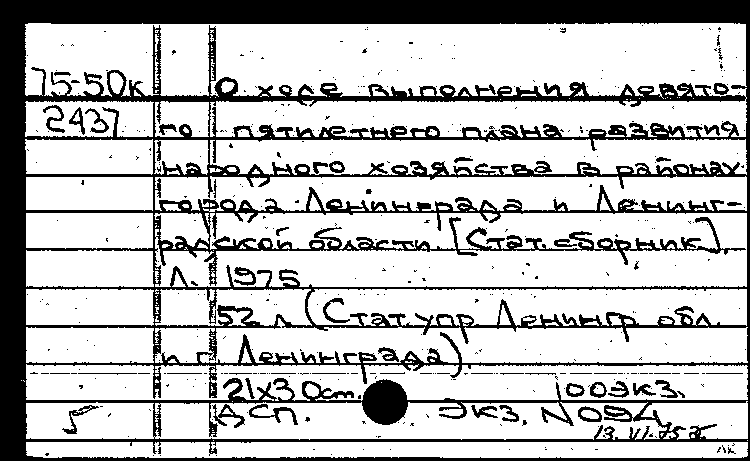 75-50к О ходе выполнения девято-
2437 го пятилетнего плана развития
народного хозяйства в районах
города Ленинграда и Ленинг-
радской области. [Стат. сборник].
Л. 1975.
52 л. (Стат. упр. Ленингр. обл.
и г. Ленинграда).
21х30 см. 100 экз.
ДСП. Экз. N 094
13.VI.75